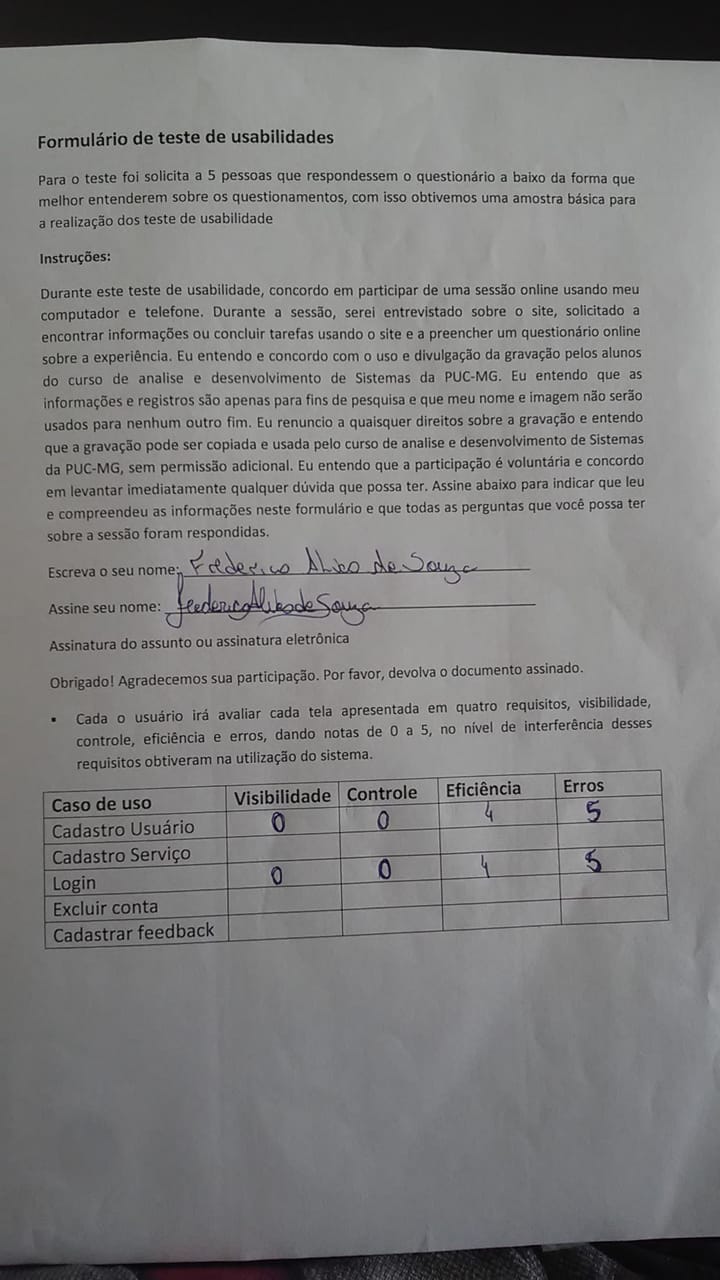 Formulário de teste de usabilidades
Para o teste foi solicita a 5 pessoas que respondessem o questionário a baixo da forma que
melhor entenderem sobre os questionamentos, com isso obtivemos uma amostra básica para
a realização dos teste de usabilidade
Instruções:
Durante este teste de usabilidade, concordo em participar de uma sessão online usando meu
computador e telefone. Durante a sessão, serei entrevistado sobre o site, solicitado a
encontrar informações ou concluir tarefas usando o site e a preencher um questionário online
sobre a experiência. Eu entendo e concordo com o uso e divulgação da gravação pelos alunos
do curso de analise e desenvolvimento de Sistemas da PUC-MG. Eu entendo que as
informações e registros são apenas para fins de pesquisa e que meu nome e imagem não serão
usados para nenhum outro fim. Eu renuncio a quaisquer direitos sobre a gravação e entendo
que a gravação pode ser copiada e usada pelo curso de analise e desenvolvimento de Sistemas
da PUC-MG, sem permissão adicional. Eu entendo que a participação é voluntária e concordo
em levantar imediatamente qualquer dúvida que possa ter. Assine abaixo para indicar que leu
e compreendeu as informações neste formulário e que todas as perguntas que você possa ter
sobre a sessão foram respondidas.
Escreva o seu nome: Frederico de Souza
Assine seu nome: Frederico de Souza
Assinatura do assunto ou assinatura eletrônica
Obrigado! Agradecemos sua participação. Por favor, devolva o documento assinado.
▪ Cada o usuário irá avaliar cada tela apresentada em quatro requisitos, visibilidade,
controle, eficiência e erros, dando notas de 0 a 5, no nível de interferência desses
requisitos obtiveram na utilização do sistema.
Caso de uso Visibilidade Controle Eficiência Erros
Cadastro Usuário 0 0 4 5
Cadastro Serviço
Login 0 0 4 5
Excluir conta
Cadastrar feedback